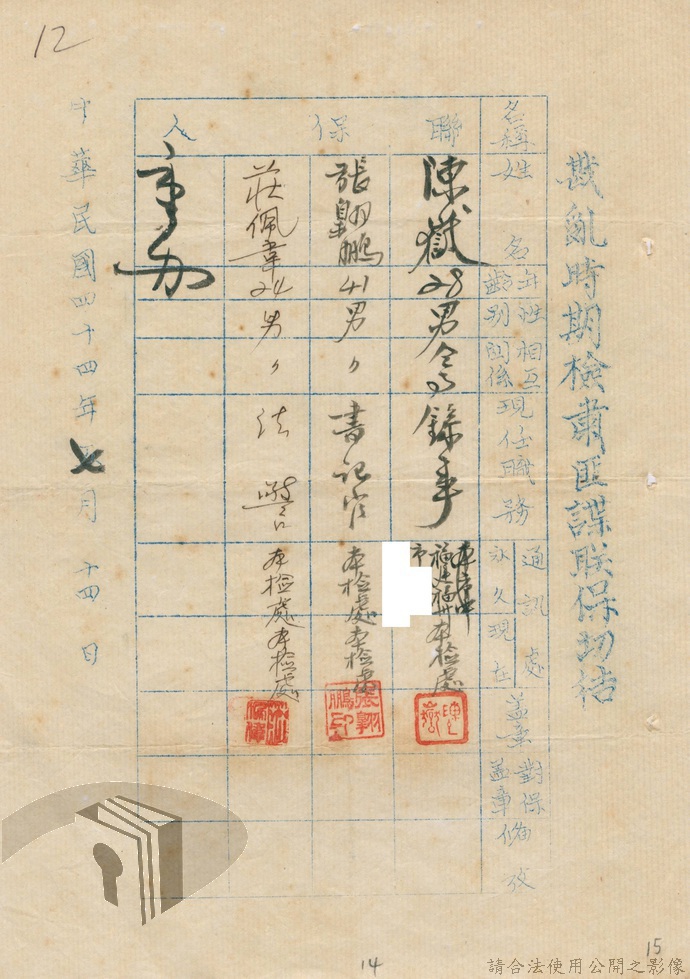 12
戡亂時期檢肅匪諜联保切结
名稱
姓名
年齡
性别
相互関係
現任職務
通訊處
永久
現在
蓋章
對保蓋章
備攷
聯保人
陳嶽 28 男 仝事 錄事 本检處
張翺鵬 41 男 〃 書記官 本检處 本检處
莊佩韋 24 男 〃 法警 本检處 本检處
中華民國四十四年七月十四日
14
15
請合法使用公開之影像